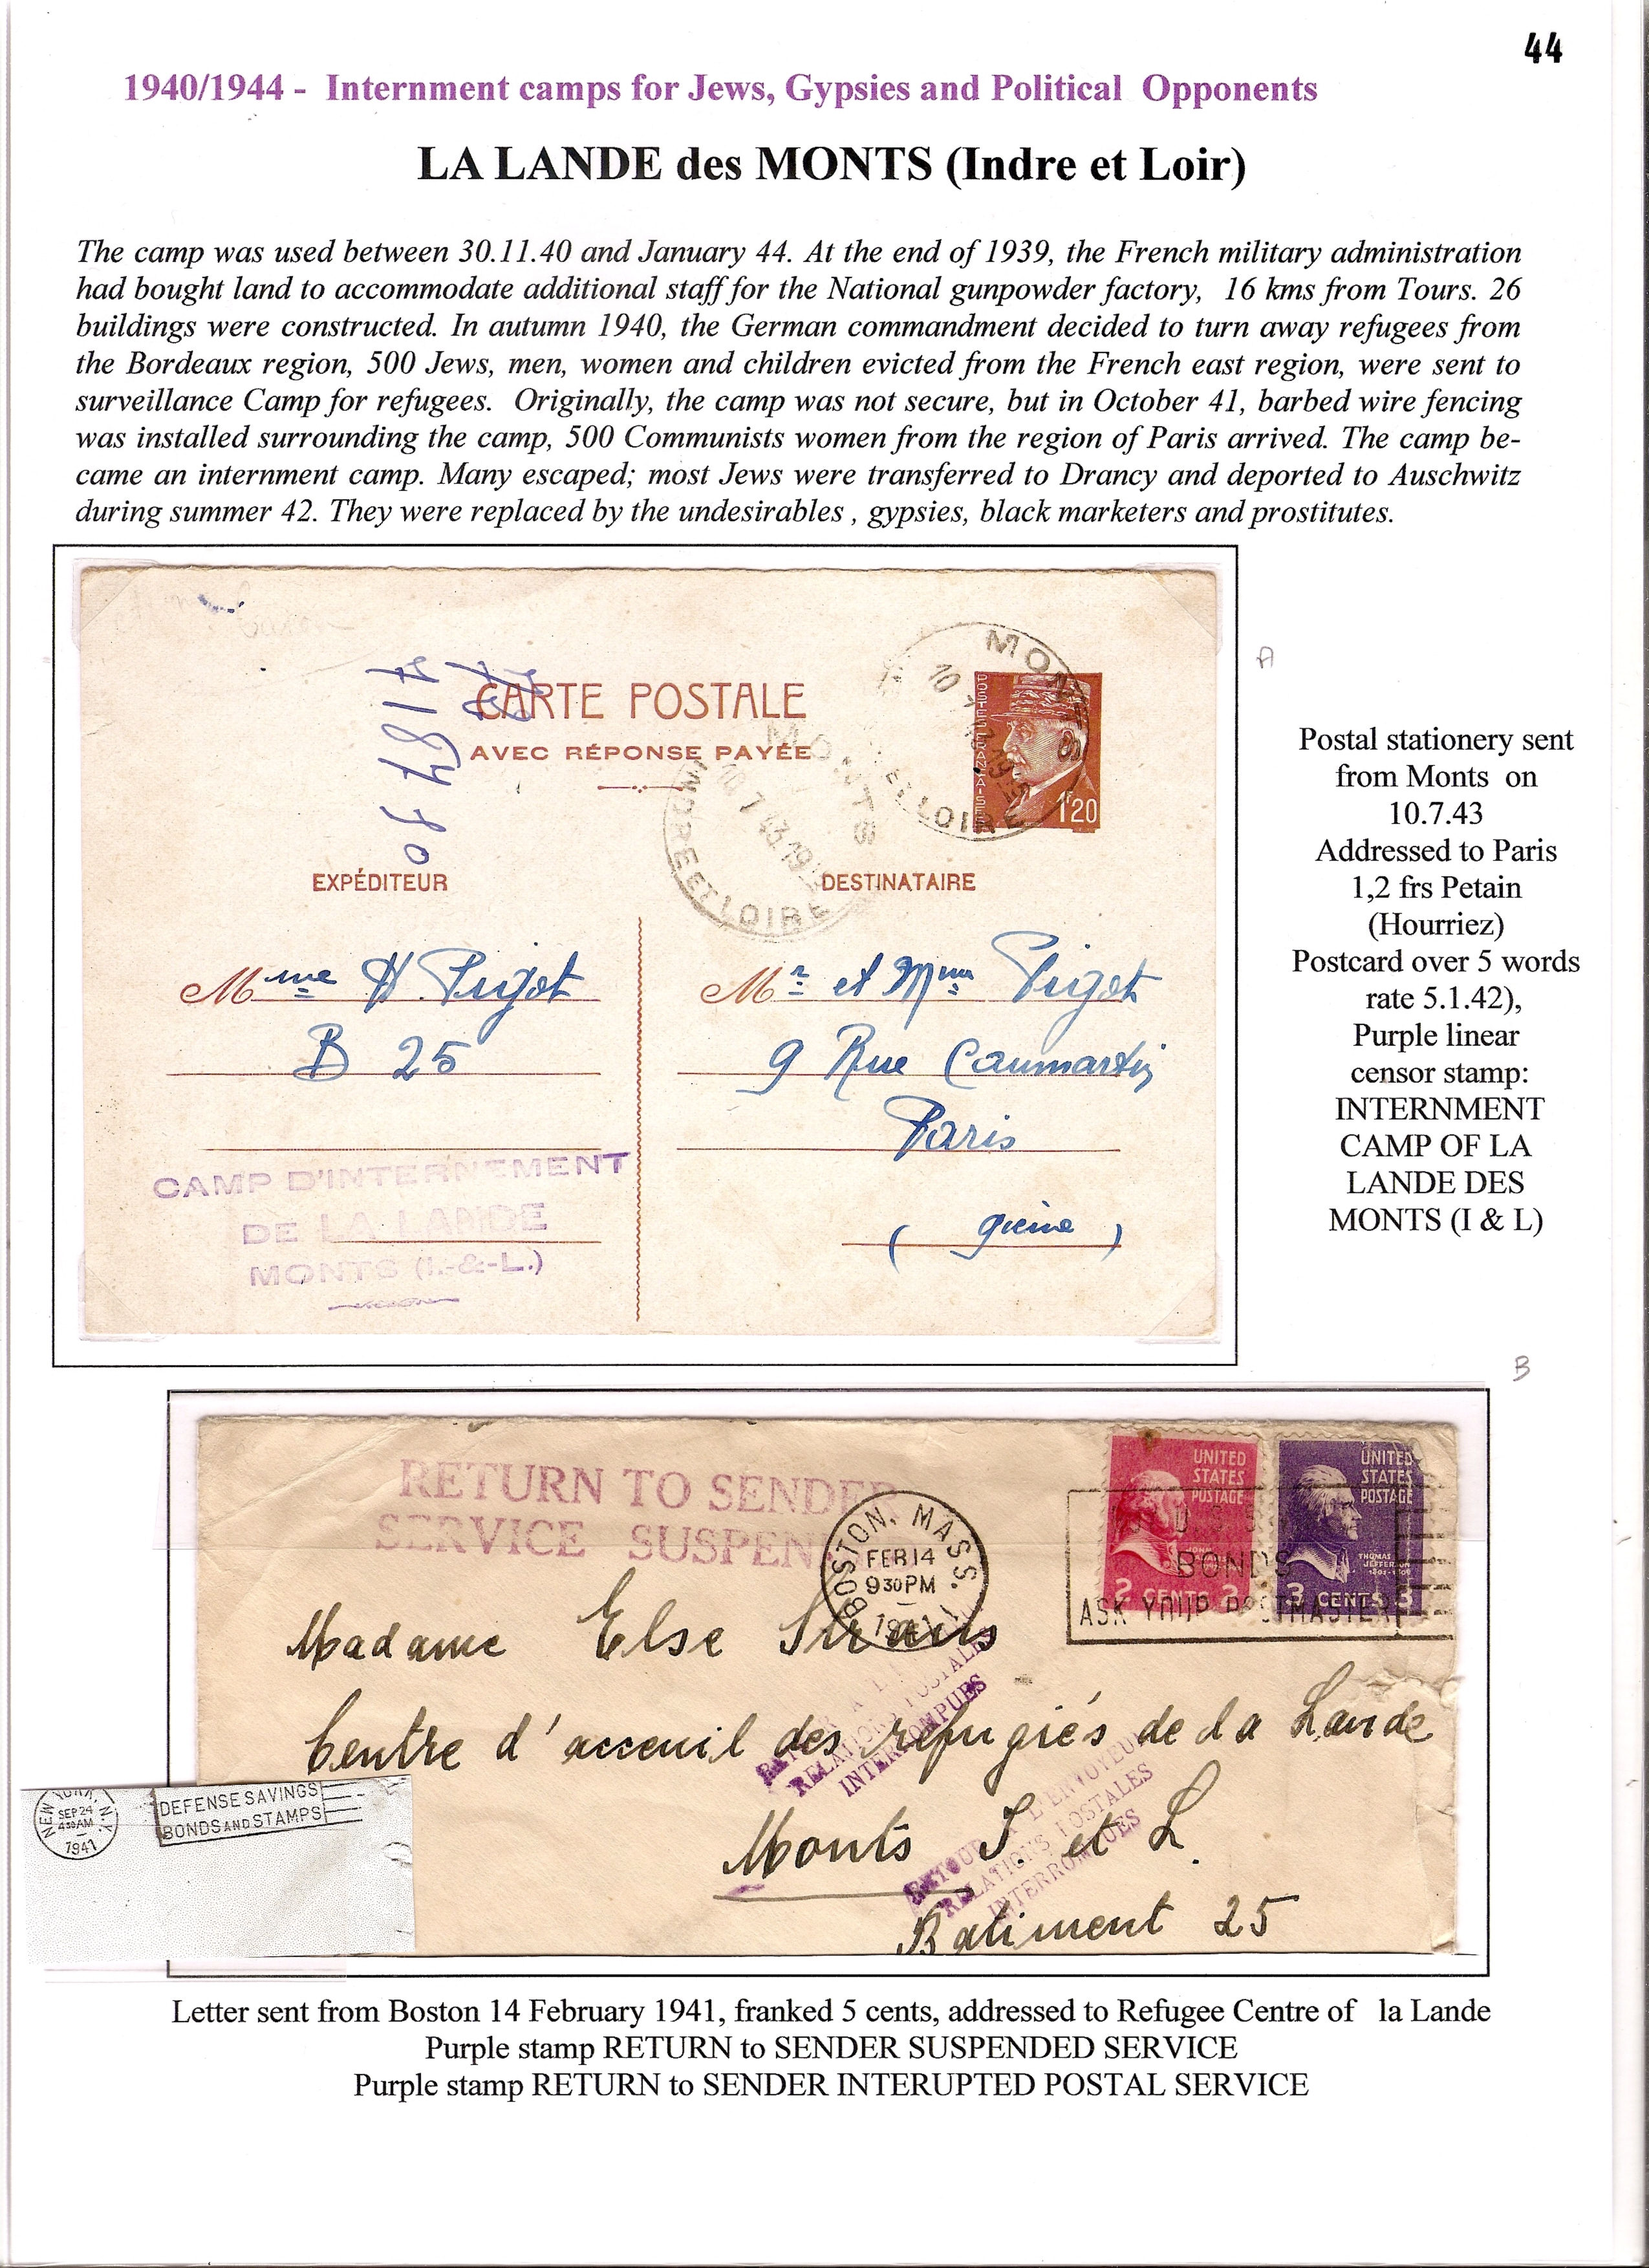 44
1940/1944 - Internment camps for Jews, Gypsies and Political Opponents
LA LANDE des MONTS (Indre et Loir)
The camp was used between 30.11.40 and January 44. At the end of 1939, the French military administration
had bought land to accommodate additional staff for the National gunpowder factory, 16 kms from Tours. 26
buildings were constructed. In autumn 1940, the German commandment decided to turn away refugees from
the Bordeaux region, 500 Jews, men, women and children evicted from the French east region, were sent to
surveillance Camp for refugees. Originally, the camp was not secure, but in October 41, barbed wire fencing
was installed surrounding the camp, 500 Communists women from the region of Paris arrived. The camp be-
came an internment camp. Many escaped; most Jews were transferred to Drancy and deported to Auschwitz
during summer 42. They were replaced by the undesirables , gypsies, black marketers and prostitutes.
A
CARTE POSTALE
AVEC RÉPONSE PAYÉE
MONTS
INDRE ET LOIRE
MONTS
ET LOIRE
POSTES FRANÇAISES
1F20
EXPÉDITEUR
DESTINATAIRE
Mme H Pigot
B 25
Mr et Mme Pigot
9 Rue Caumartin
Paris
CAMP D'INTERNEMENT
DE LA LANDE
MONTS (I.-&-L.)
Postal stationery sent
from Monts on
10.7.43
Addressed to Paris
1,2 frs Petain
(Hourriez)
Postcard over 5 words
rate 5.1.42),
Purple linear
censor stamp:
INTERNMENT
CAMP OF LA
LANDE DES
MONTS (I & L)
B
RETURN TO SENDER
SERVICE SUSPEN
BOSTON, MASS.
FEB 14
930PM
1941
UNITED
STATES
POSTAGE
2 CENTS 2
UNITED
STATES
POSTAGE
THOMAS
JEFFERSON
3 CENTS 3
BONDS
ASK YOUR POSTMASTER
Madame Else Straus
Centre d'acceuil des refugiés de la Lande
Monts I. et L.
Batiment 25
RELATIONS POSTALES
INTERROMPUES
RETOUR A L'ENVOYEUR
RELATIONS POSTALES
INTERROMPUES
NEW YORK, N.Y.
SEP 24
430AM
1941
DEFENSE SAVINGS
BONDS AND STAMPS
Letter sent from Boston 14 February 1941, franked 5 cents, addressed to Refugee Centre of la Lande
Purple stamp RETURN to SENDER SUSPENDED SERVICE
Purple stamp RETURN to SENDER INTERUPTED POSTAL SERVICE